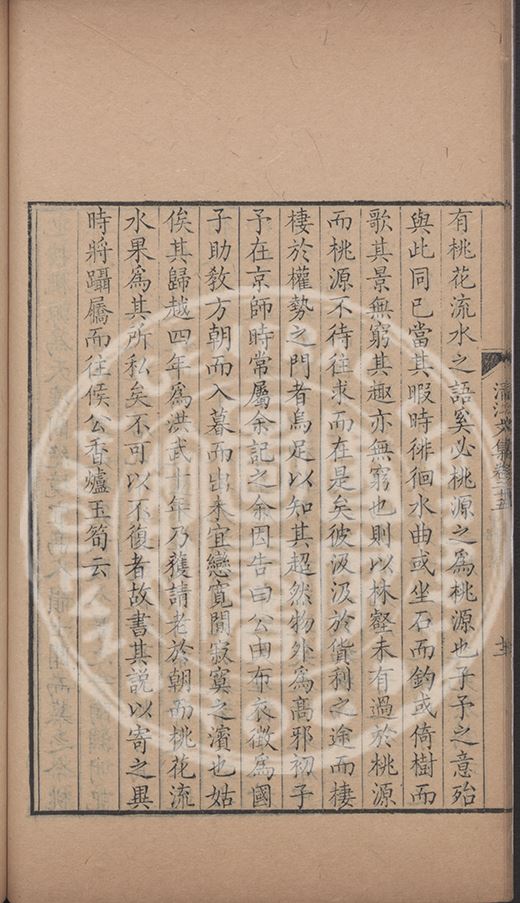 有桃花流水之語奚必桃源之爲桃源也子予之意殆
與此同已當其暇時徘徊水曲或坐石而釣或倚樹而
歌其景無窮其趣亦無窮也則以林壑未有過於桃源
而桃源不待往求而在是矣彼汲汲於貨利之途而棲
棲於權勢之門者烏足以知其超然物外爲髙邪初子
予在京師時常屬余記之余因告曰公由布衣徴爲國
子助教方朝而入暮而出未宜戀寛閒寂寞之濱也姑
俟其歸越四年爲洪武十年乃獲請老於朝而桃花流
水果爲其所私矣不可以不復者故書其説以寄之異
時將躡屩而往候公香爐玉笥云
清江文集卷